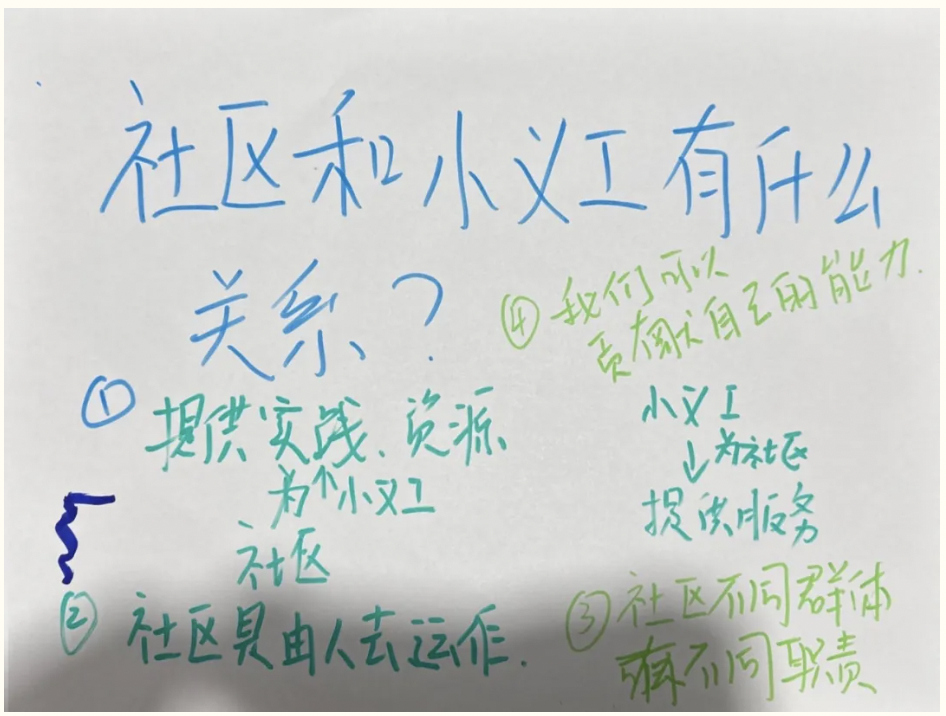 社区和小义工有什么
关系？
① 提供实践、资源
为↑小义工
社区
② 社区具由人去运作.
小义工
↓为社区
提供服务
③ 社区不同群体
有不同职责
④ 我们可以
贡献自己的能力.